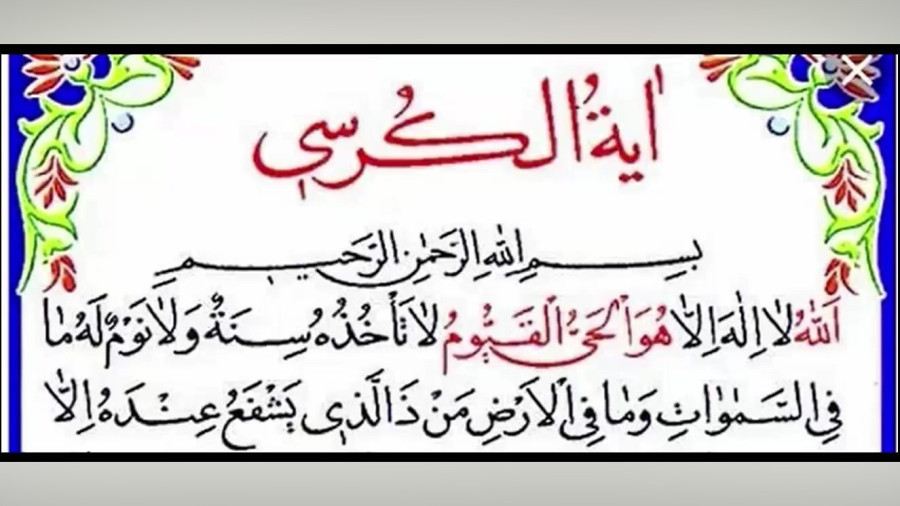 اٰيةُ الكُرسي
بِسْمِ اللّٰهِ الرَّحْمٰنِ الرَّحيمِ
اَللّٰهُ لَا اِلٰهَ اِلَّا هُوَ اَلْحَيُّ الْقَيُّومُ لَا تَأْخُذُهُ سِنَةٌ وَلَا نَوْمٌ لَهُ مَا
فِي السَّمٰوَاتِ وَمَا فِي الْاَرْضِ مَنْ ذَا الَّذي يَشْفَعُ عِنْدَهُ اِلَّا